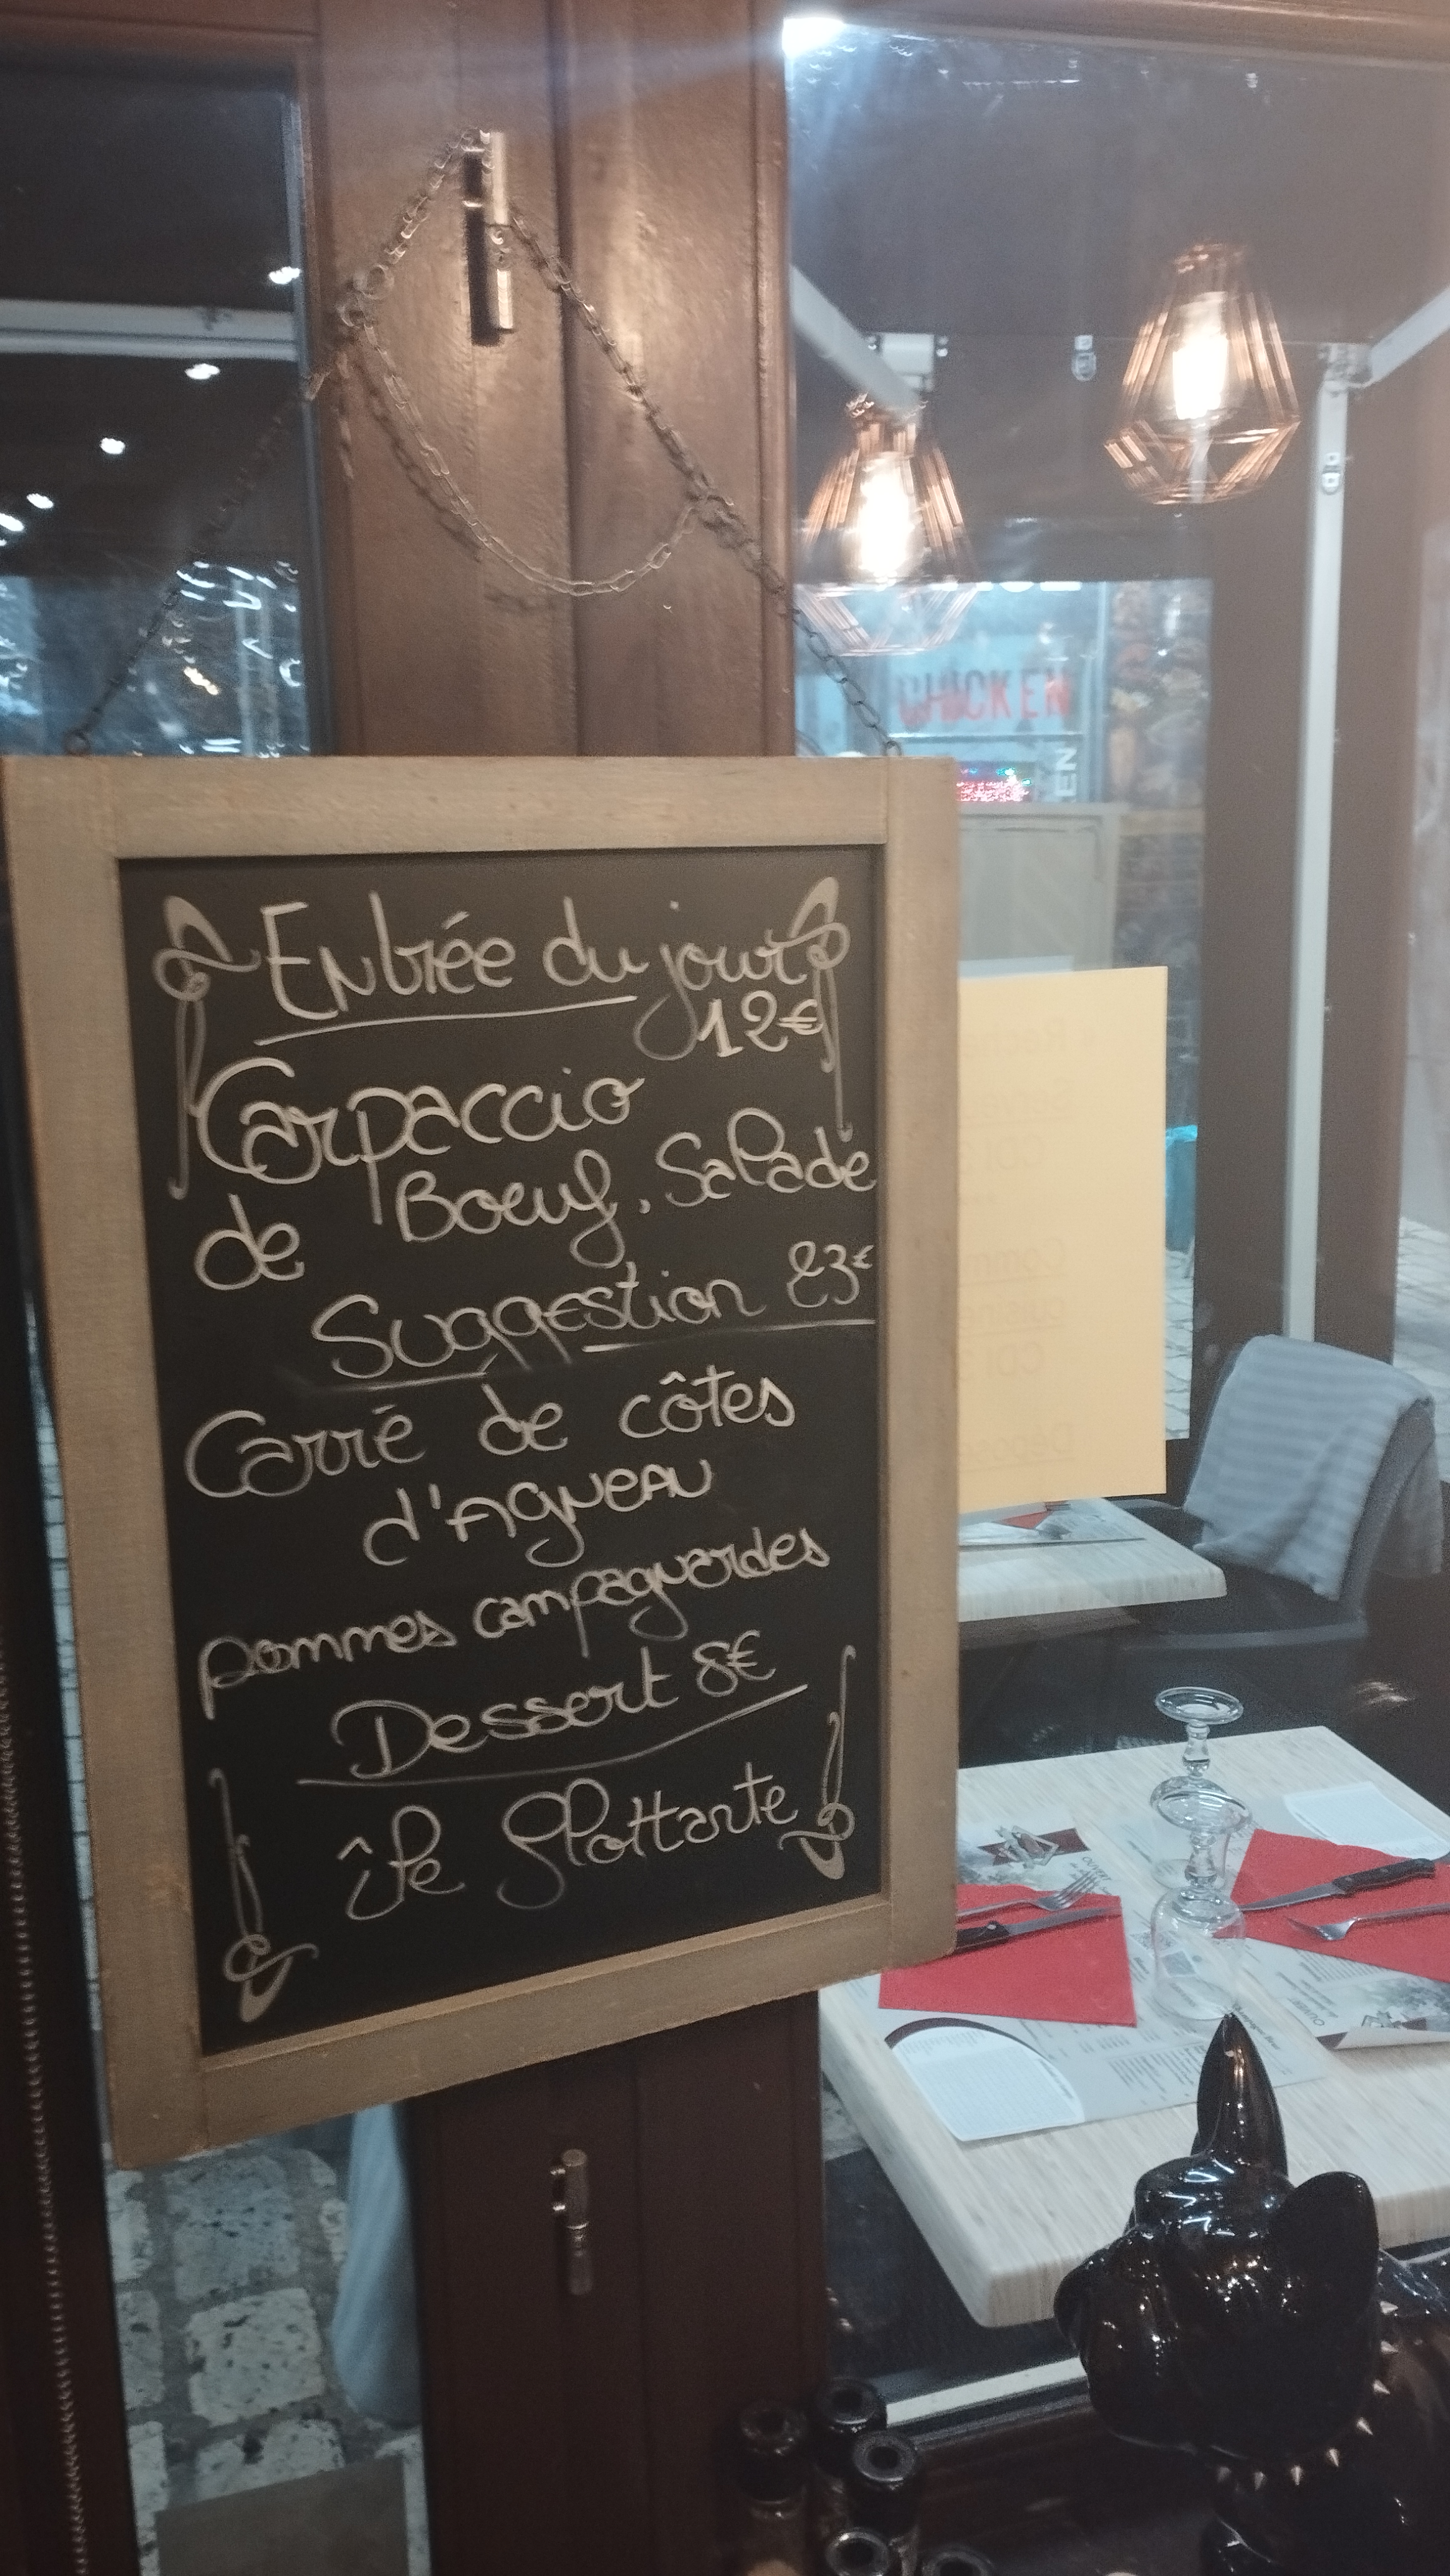 CHICKEN
EN
Entrée du jour
12€
Carpaccio
de Boeuf, Salade
Suggestion 23€
Carré de côtes
d'AgNeau
pommes campagnardes
Dessert 8€
île flottante